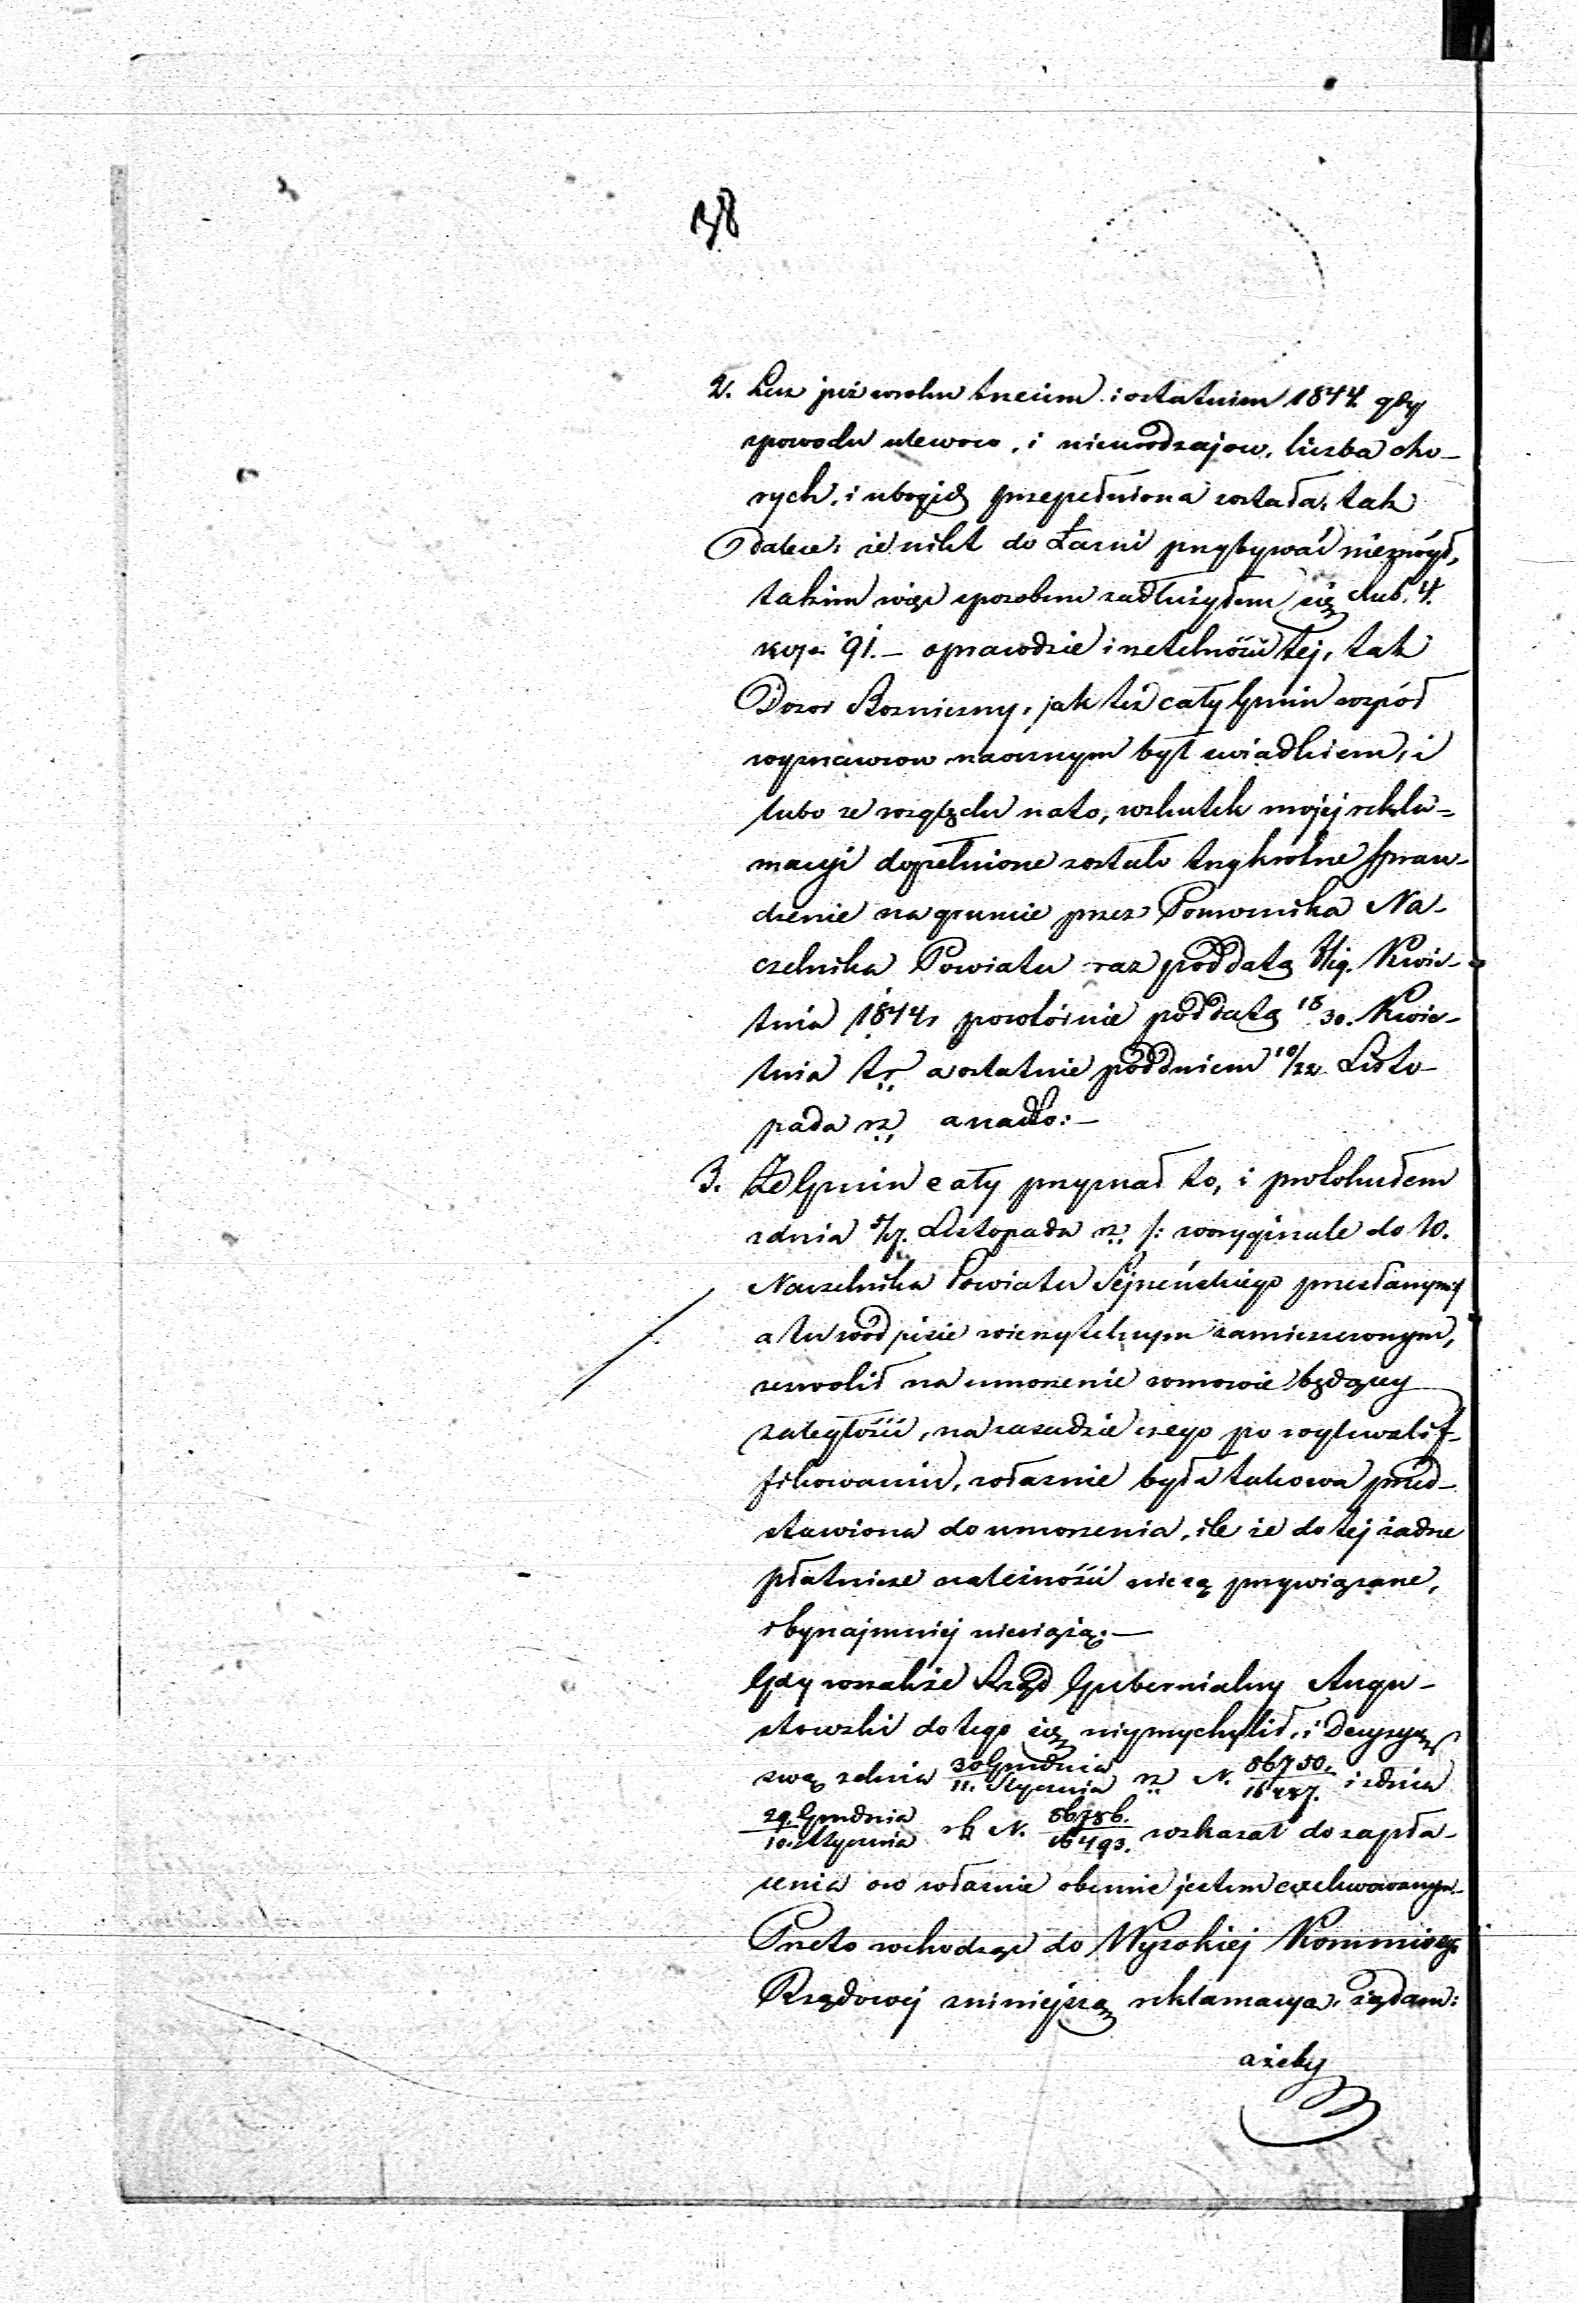 38
2. Lecz już wroku trzecim i ostatnim 1844 gdy
zpowodu ulewow, i nieurodzajow, liczba cho-
rych, i ubogich przepełniona została, tak
dalece, że nikt do Łazni przybywać niemógł,
takim więc sposobem zadłużyłem się Rub. 4.
kop. 91.— oprawdzie i rzetelności tej, tak
Dozor Boźniczny, jak też cały Gmin współ
wyznawcow naocznym był swiadkiem, i
lubo ze względu nato, wskutek mojej rekla-
macyi dopełnione zostało trzykrotne spraw-
dzenie na gruncie przez Pomocnika Na-
czelnika Powiatu raz pod datą 7/19. Kwie-
tnia 1844, powtórnie pod datą 18/30. Kwie-
tnia t.r. a ostatnie pod dniem 10/22 Listo-
pada r.z. a nadto:—
3. Że Gmin cały przyznał to, i protokułem
zdnia 5/17. Listopada r.z. /: woryginale do W.
Naczelnika Powiatu Sejneńskiego przesłanym
a tu wodpisie wierzytelnym zamieszczonym,
zezwolił na umorzenie wmowie będący
zaległości, na zasadzie czego po wykwalif-
fikowaniu, własnie była takowa przed-
stawiona do umorzenia, ile że do tej żadne
płatnicze należności niesą przywiązane,
i bynajmniej nieciążą.—
Gdy wszakże Rząd Gubernialny Augu-
stowski do tego się nieprzychylił, i Decyzyą
swą zdnia 30 Grudnia/11. Stycznia r.z. N. 86750./16487. i zdnia
29. Grudnia/10. Stycznia rb N. 86786./16493. wskazał do zapła-
cenia oco własnie obecnie jestem exekwowanym.—
Przeto wchodząc do Wysokiej Kommissyi
Rządowej zniniejszą reklamacyą, żądam:
ażeby